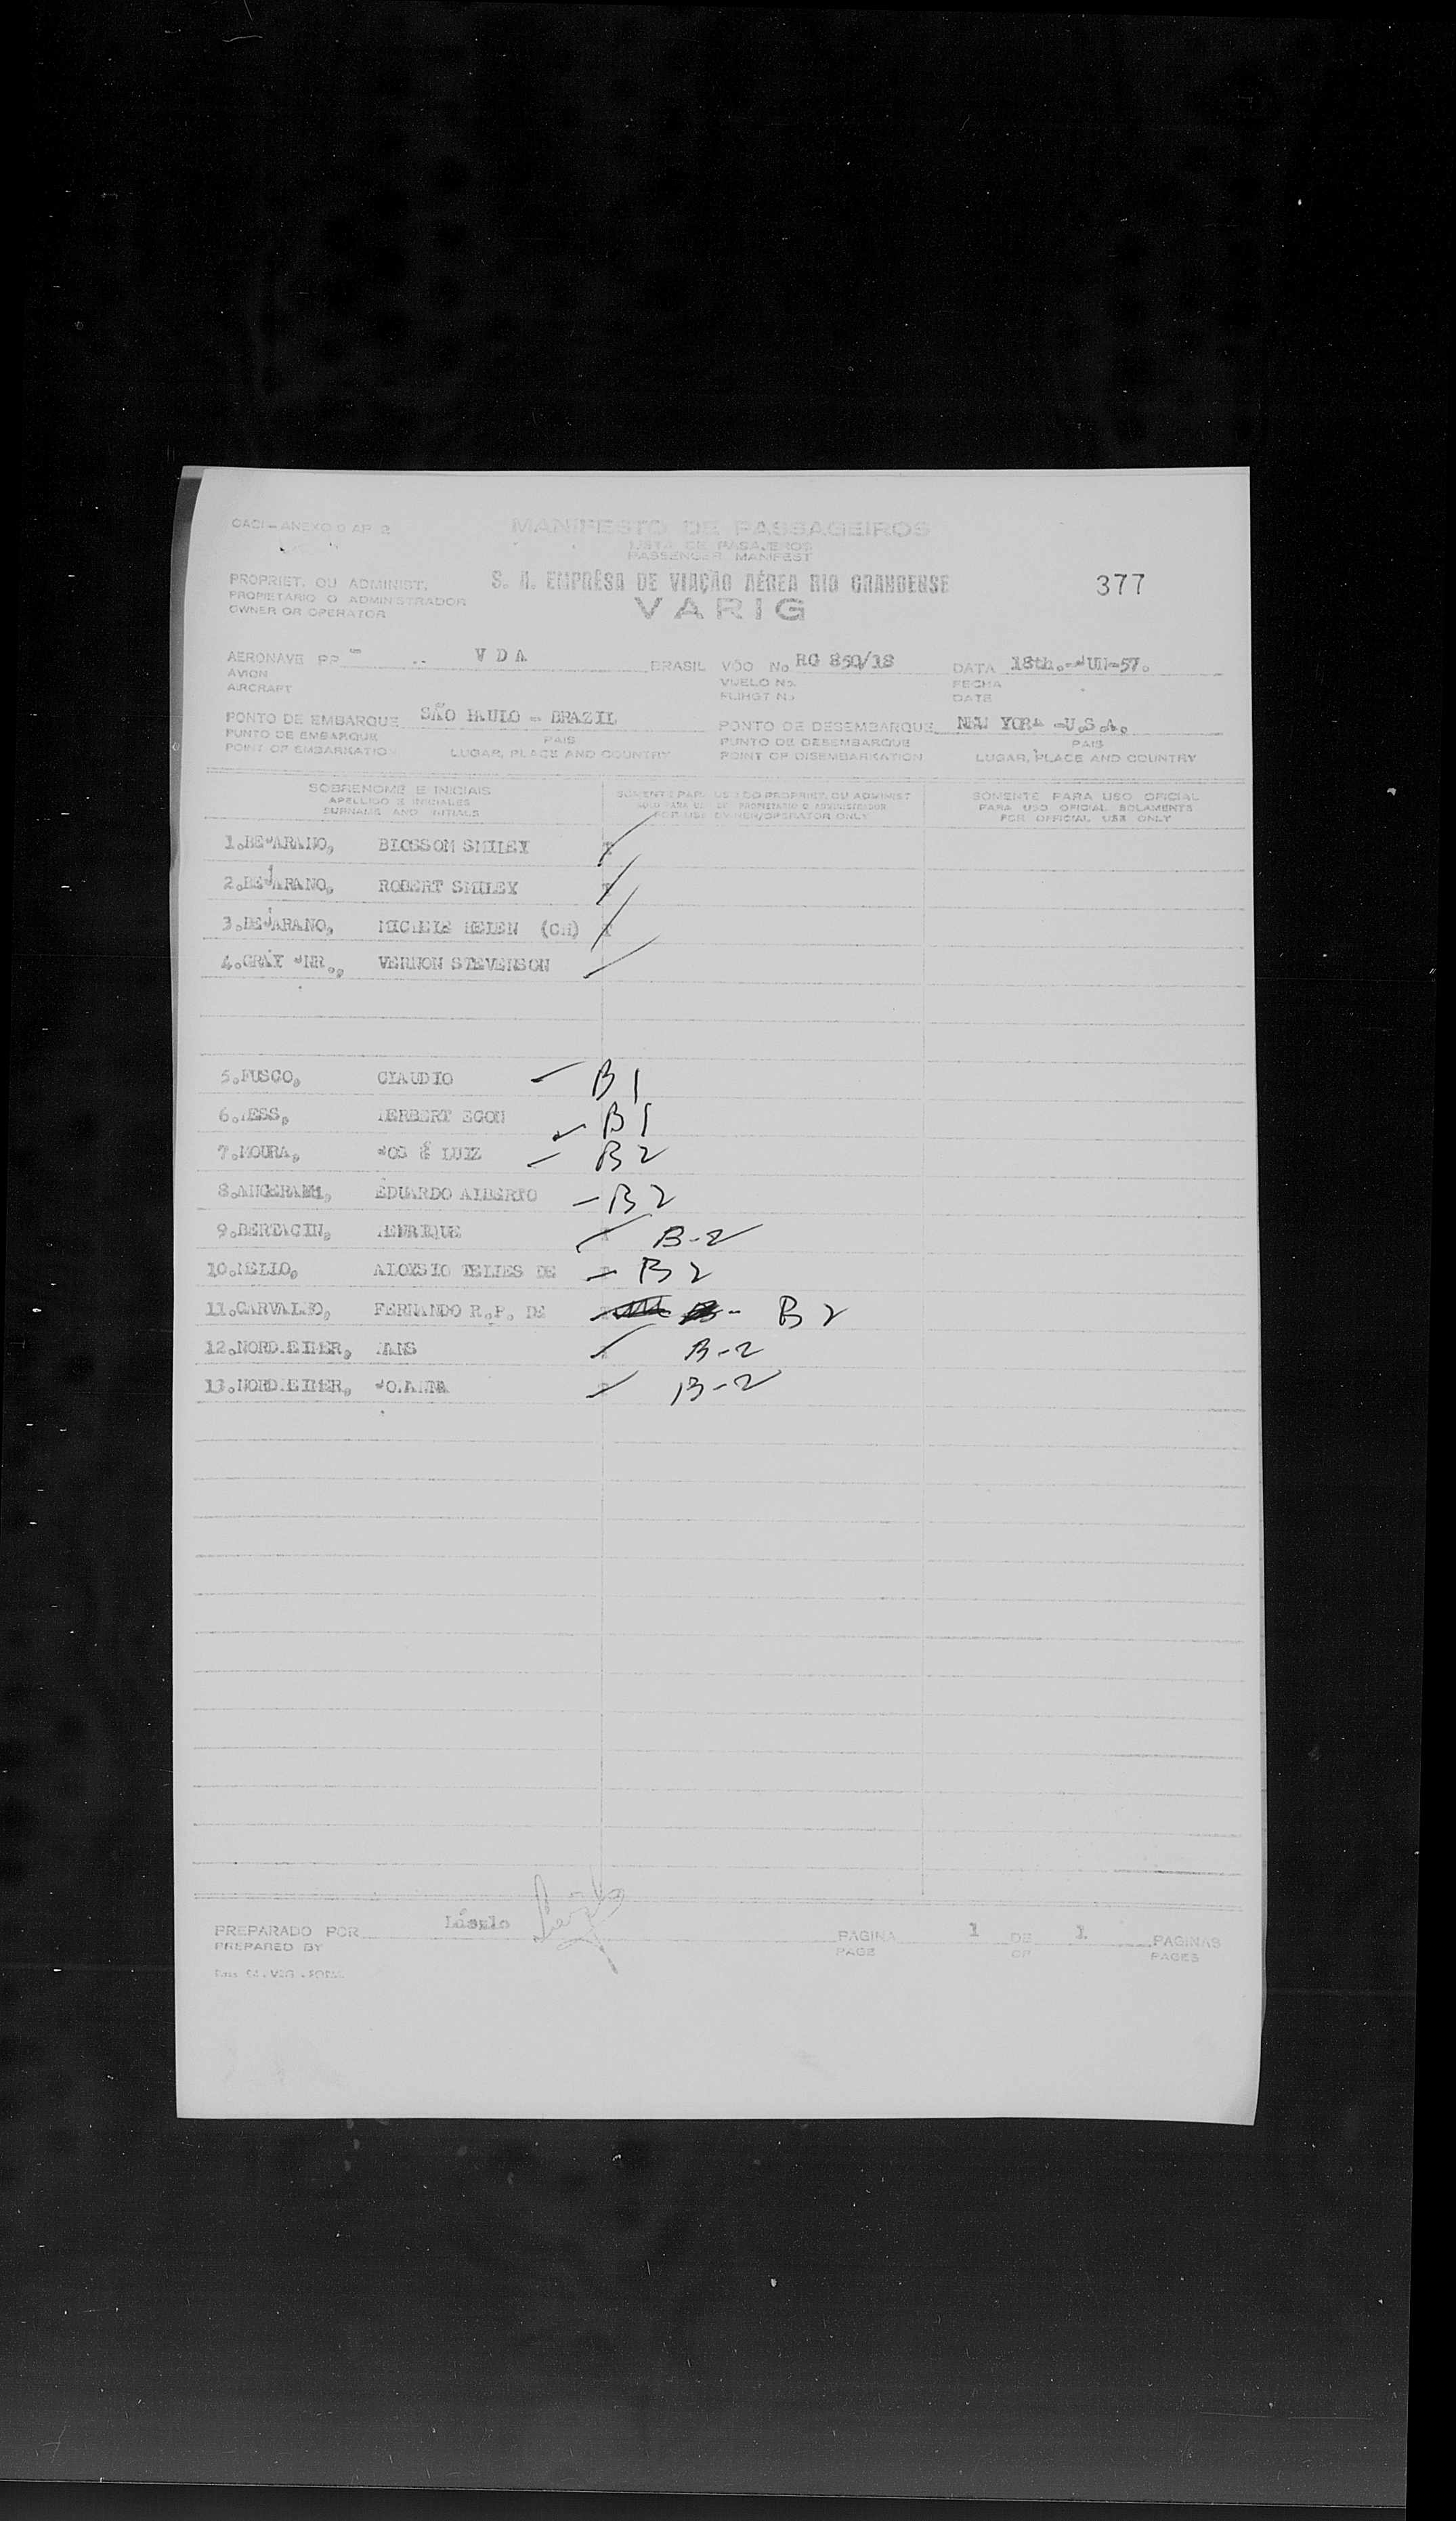 OACI — ANEXO 9 AP. 2
MANIFESTO DE PASSAGEIROS
LISTA DE PASAJEROS
PASSENGER MANIFEST
PROPRIET. OU ADMINIST.
PROPIETARIO O ADMINISTRADOR
OWNER OR OPERATOR
S. A. EMPRÊSA DE VIAÇÃO AÉREA RIO GRANDENSE
VARIG
377
AERONAVE PP - V D A BRASIL VÔO No. RG 850/18 DATA 18th.-JUN-57.
AVION VUELO No. FECHA
AIRCRAFT FLIHGT No. DATE
PONTO DE EMBARQUE SÃO PAULO - BRAZIL PONTO DE DESEMBARQUE NEW YORK -U.S.A.
PUNTO DE EMBARQUE PAIS PUNTO DE DESEMBARQUE PAIS
POINT OF EMBARKATION LUGAR, PLACE AND COUNTRY POINT OF DISEMBARKATION LUGAR, PLACE AND COUNTRY
SOBRENOME E INICIAIS SOMENTE PARA USO DO PROPRIET. OU ADMINIST SOMENTE PARA USO OFICIAL
APELLIDO E INICIALES SOLO PARA USO DE PROPIETARIO O ADMINISTRADOR PARA USO OFICIAL SOLAMENTE
SURNAME AND INITIALS FOR USE OWNER/OPERATOR ONLY FOR OFFICIAL USE ONLY
1.BEJARANO, BLOSSOM SMILEY T
2.BEJARANO, ROBERT SMILEY T
3.BEJARANO, MICHELE HELEN (CH) T
4.GRAY JNR., VERNON STEVERSON
5.FUSCO, CLAUDIO B1
6.HESS, HERBERT EGON B1
7.MOURA, JOSÉ LUIZ B2
8.ANGERAMI, EDUARDO ALBERTO B2
9.BERTACIN, HENRIQUE B-2
10.MELLO, ALOYSIO TELLES DE B2
11.CARVALHO, FERNANDO R.P. DE B2
12.NORDHEIMER, HANS B-2
13.NORDHEIMER, JOHANNA B-2
PREPARADO POR László PAGINA 1 DE 1 PAGINAS
PREPARED BY PAGE OF PAGES